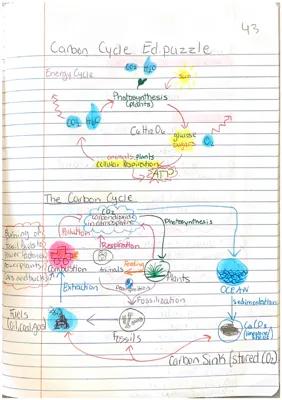 43
Carbon Cycle Ed.puzzle
Energy Cycle
CO2 H2O
sun
Photosynthesis
(plants)
CO2 H2O
C6H12O6
glucose
sugars
O2
animals, plants
Cellular Respiration
ATP
The Carbon Cycle
CO2
carbondioxide
in atmosphere
Photosynthesis
Burning of
fossil fuels to
power factories
powerplants
cars and trucks
Pollution
Respiration
Combustion
Feeding
animals
Plants
OCEAN
Extraction
sedimentation
Fossilization
Fuels
(oil, coal, gas)
Fossils
CaCO3
Carbon Sink (stored CO2)